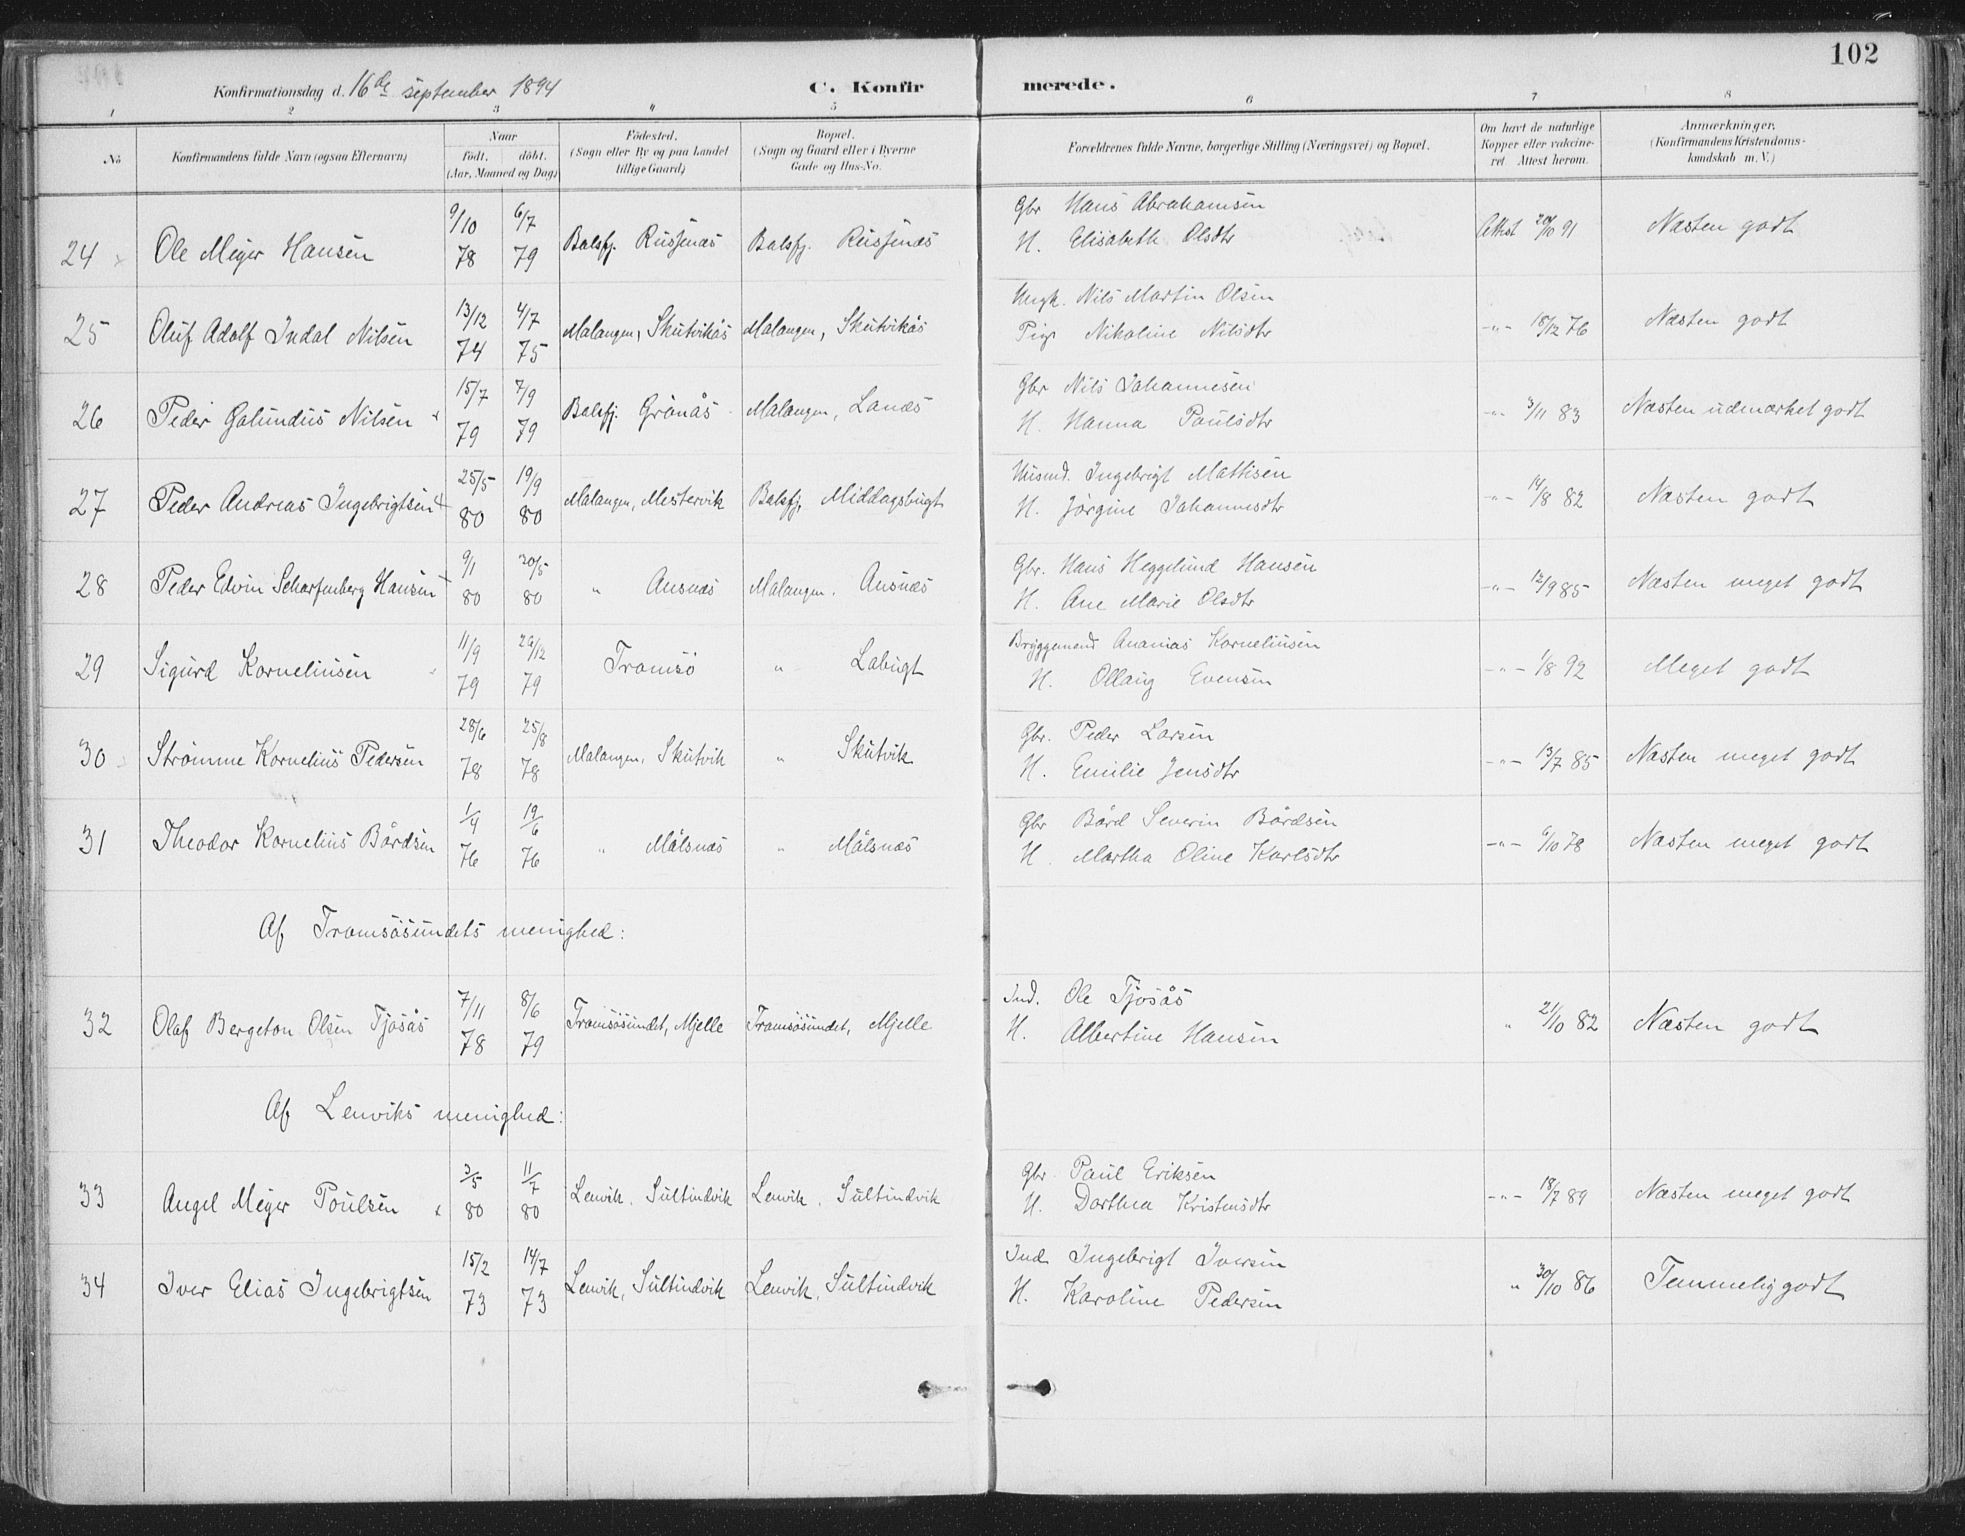 102
Konfirmationsdag d. 16de september 1894 C. Konfirmerede.
1 2 3 4 5 6 7 8
No
Konfirmandens fulde Navn (ogsaa Efternavn)
Naar
födt. döbt.
(Aar, Maaned og Dag)
Födested.
(Sogn eller By og paa Landet
tillige Gaard)
Bopæl.
(Sogn og Gaard eller i Byerne
Gade og Hus-No.
Forældrenes fulde Navne, borgerlige Stilling (Næringsvei) og Bopæl.
Om havt de naturlige
Kopper eller vakcine-
ret Attest herom.
Anmærkninger.
(Konfirmandens Kristendoms-
kundskab m. V.)
24 Ole Meyer Hansen 9/10 78 6/7 79 Balsfj. Russenæs Balsfj. Russenæs Gbr Hans Abrahamsen
H. Elisabeth Olsdtr Attest 20/10 91 Næsten godt
25 Oluf Adolf Indal Nilsen 13/12 74 4/7 75 Malangen, Skutvikås Malangen, Skutvikås Ungk. Nils Martin Olsen
Pige Nikoline Nilsdtr -"- 18/12 76 Næsten godt
26 Peder Galundus Nilsen 15/7 79 7/9 79 Balsfj. Grönås Malangen, Lanæs Gbr Nils Johannesen
H. Hanna Paulsdtr -"- 3/11 83 Næsten udmærket godt
27 Peder Andreas Ingebrigtsen 25/5 80 19/9 80 Malangen, Mestervik Balsfj. Middagsbugt Husmd. Ingebrigt Mattisen
H. Jørgine Johannesdtr -"- 14/8 82 Næsten godt
28 Peder Edvin Scharfenberg Hansen 9/1 80 30/5 80 " Ansnæs Malangen. Ansnæs Gbr. Hans Heggelund Hansen
H. Ane Marie Olsdtr -"- 12/9 85 Næsten meget godt
29 Sigurd Korneliusen 11/9 79 29/12 79 Tromsö " Labugt Bryggemand Ananias Korneliusen
H. Ollaug Evensen -"- 1/8 92 Meget godt
30 Strømme Kornelius Pedersen 28/6 78 25/8 78 Malangen, Skutvik " Skutvik Gbr. Peder Larsen
H. Emilie Jensdtr -"- 13/7 85 Næsten meget godt
31 Theodor Kornelius Bårdsen 1/4 76 19/6 76 " Målsnæs " Målsnæs Gbr Bård Severin Bårdsen
H. Martha Oline Karlsdtr -"- 6/10 78 Næsten meget godt
Af Tromsösundets menighed:
32 Olaf Bergeton Olsen Tjosås 7/11 78 8/6 79 Tromsösundet, Mjelle Tromsösundet, Mjelle Ind. Ole Tjosås
H. Albertine Hansen " 21/10 82 Næsten godt
Af Lenviks menighed:
33 Angel Meyer Poulsen 3/5 80 11/7 80 Lenvik, Sultindvik Lenvik, Sultindvik Gbr. Paul Eriksen
H. Dorthea Kristensdtr -"- 18/7 89 Næsten meget godt
34 Iver Elias Ingebrigtsen 15/2 73 14/7 73 Lenvik, Sultindvik Lenvik, Sultindvik Ind Ingebrigt Iversen
H. Karoline Pedersen " 30/10 86 Temmelig godt